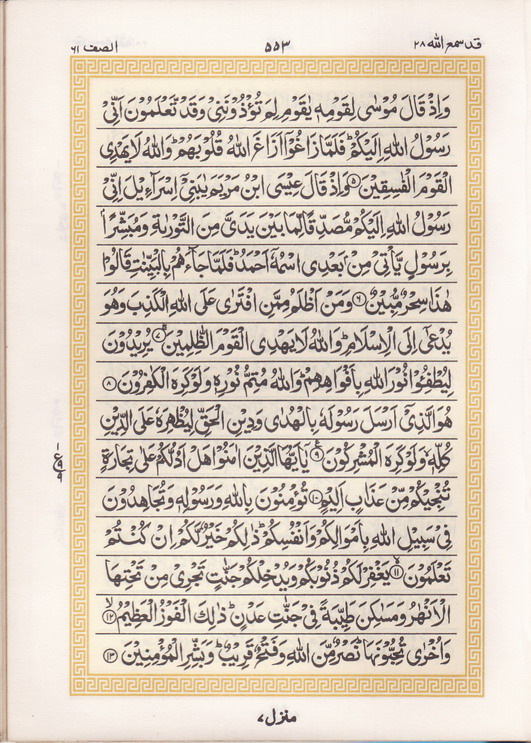 قد سمع الله ٢٨ ٥٥٣ الصف ٦١
وَاِذْ قَالَ مُوْسٰى لِقَوْمِهٖ يٰقَوْمِ لِمَ تُؤْذُوْنَنِيْ وَقَدْ تَّعْلَمُوْنَ اَنِّيْ
رَسُوْلُ اللّٰهِ اِلَيْكُمْ ؕ فَلَمَّا زَاغُوْۤا اَزَاغَ اللّٰهُ قُلُوْبَهُمْ ؕ وَاللّٰهُ لَا يَهْدِى
الْقَوْمَ الْفٰسِقِيْنَ ۝۵ وَاِذْ قَالَ عِيْسَى ابْنُ مَرْيَمَ يٰبَنِيْۤ اِسْرَآءِيْلَ اِنِّيْ
رَسُوْلُ اللّٰهِ اِلَيْكُمْ مُّصَدِّقًا لِّمَا بَيْنَ يَدَيَّ مِنَ التَّوْرٰىةِ وَمُبَشِّرًۢا
بِرَسُوْلٍ يَّاْتِيْ مِنْۢ بَعْدِى اسْمُهٗۤ اَحْمَدُ ؕ فَلَمَّا جَآءَهُمْ بِالْبَيِّنٰتِ قَالُوْا
هٰذَا سِحْرٌ مُّبِيْنٌ ۝۶ وَمَنْ اَظْلَمُ مِمَّنِ افْتَرٰى عَلَى اللّٰهِ الْكَذِبَ وَهُوَ
يُدْعٰۤى اِلَى الْاِسْلَامِ ؕ وَاللّٰهُ لَا يَهْدِى الْقَوْمَ الظّٰلِمِيْنَ ۝۷ يُرِيْدُوْنَ
لِيُطْفِـُٔوْا نُوْرَ اللّٰهِ بِاَفْوَاهِهِمْ ؕ وَاللّٰهُ مُتِمُّ نُوْرِهٖ وَلَوْ كَرِهَ الْكٰفِرُوْنَ ۝۸
هُوَ الَّذِيْۤ اَرْسَلَ رَسُوْلَهٗ بِالْهُدٰى وَدِيْنِ الْحَقِّ لِيُظْهِرَهٗ عَلَى الدِّيْنِ
كُلِّهٖ وَلَوْ كَرِهَ الْمُشْرِكُوْنَ ۝۹ يٰۤاَيُّهَا الَّذِيْنَ اٰمَنُوْا هَلْ اَدُلُّكُمْ عَلٰى تِجَارَةٍ
تُنْجِيْكُمْ مِّنْ عَذَابٍ اَلِيْمٍ ۝۱۰ تُؤْمِنُوْنَ بِاللّٰهِ وَرَسُوْلِهٖ وَتُجَاهِدُوْنَ
فِيْ سَبِيْلِ اللّٰهِ بِاَمْوَالِكُمْ وَاَنْفُسِكُمْ ؕ ذٰلِكُمْ خَيْرٌ لَّكُمْ اِنْ كُنْتُمْ
تَعْلَمُوْنَ ۝۱۱ يَغْفِرْ لَكُمْ ذُنُوْبَكُمْ وَيُدْخِلْكُمْ جَنّٰتٍ تَجْرِيْ مِنْ تَحْتِهَا
الْاَنْهٰرُ وَمَسٰكِنَ طَيِّبَةً فِيْ جَنّٰتِ عَدْنٍ ؕ ذٰلِكَ الْفَوْزُ الْعَظِيْمُ ۝۱۲
وَاُخْرٰى تُحِبُّوْنَهَا ؕ نَصْرٌ مِّنَ اللّٰهِ وَفَتْحٌ قَرِيْبٌ ؕ وَبَشِّرِ الْمُؤْمِنِيْنَ ۝۱۳
ع
۹
۹
منزل ۷